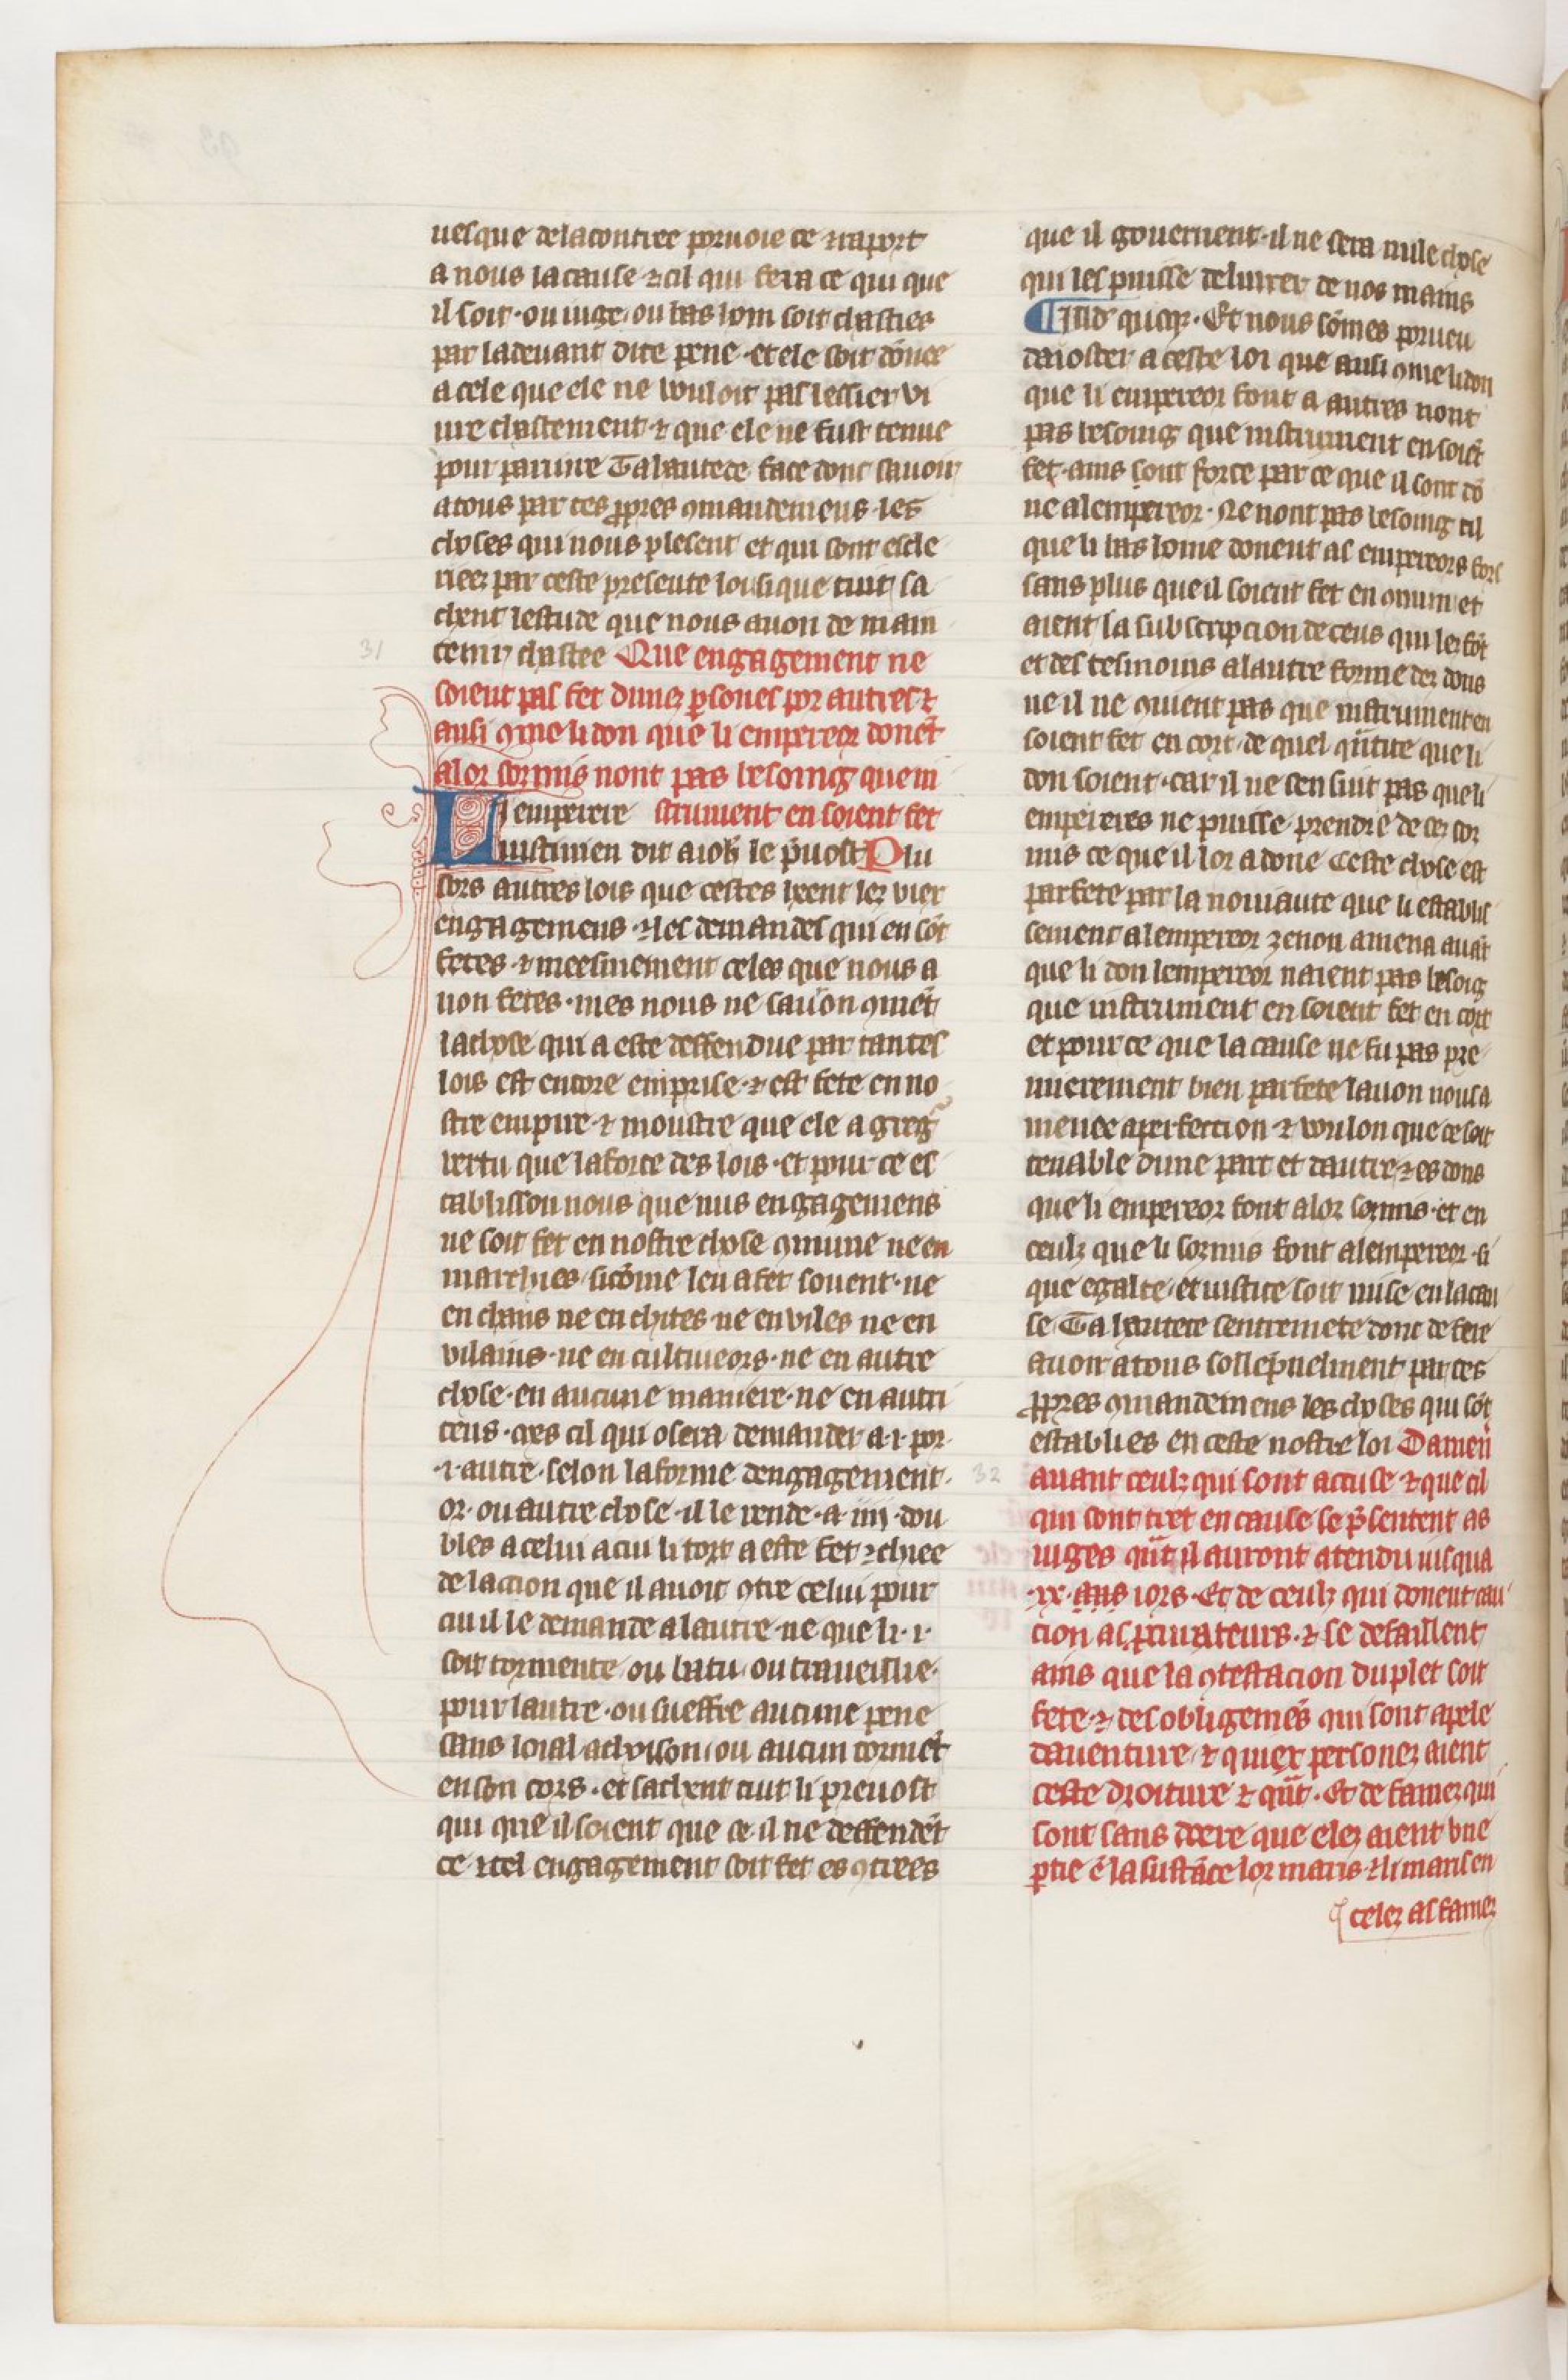 uesque de la contree poruoie ce ⁊ raport
a nous la cause ⁊ cil qui fera ce qui que
il soit · ou iuge · ou bas hom soit chasties
par la deuant dite pene · et ele soit dōnee
a cele que ele ne vouloit pas lessier vi
ure chastement ⁊ que ele ne fust tenue
pour pariure Ta hautece face donc sauoir
a tous par tes ꝓpres ꝯmandemens les
choses qui nous plesent et qui sont escle
riees par ceste presente loi si que tuit sa
chent lestude que nous auon de main
31
tenir chastee Que engagement ne
soient pas fet dunez ꝑsones por autres ⁊
ausi ꝯme li don que li empereor donēt
a lor sormis nont pas besoing que in
Li emperere strument en soient fet
iustinien dit a ioh̄ le p̄uost Plu
sors autres lois que cestes heent lez vier
engagemens · ⁊ les demandes qui en sōt
fetes · ⁊ meesmement celes que nous a
uon fetes · mes nous ne sauon ꝯmēt
la chose qui a este deffendue par tantes
lois est encore emprise · ⁊ est fete en no
stre empire · ⁊ moustre que ele a greg̃
vertu que la force des lois · et pour ce es
tablisson nous que nus engagemens
ne soit fet en nostre chose ꝯmune ne en
marchies · si cōme len a fet souent · ne
en chans ne en chites · ne en viles ne en
vilains · ne en cultiueors · ne en autre
chose · en aucune maniere · ne en autri
tens · mes cil qui osera demander a · i · por
· i · autre · selon la forme dengagement ·
or · ou autre chose · il le rende · a · iiij · dou
bles a celui a cui li tort a este fet ⁊ chiee
de laction que il auoit ꝯtre celui pour
cui il le demande a lautre · ne que li · i ·
soit tormente ou batu ou traueillie ·
pour lautre · ou sueffre aucune pene
sans loial achoison · ou aucun tormēt
en son cors · et sachent tuit li preuost
qui que il soient que ce il ne deffendēt
ce itel engagement soit fet es ꝯtrees
que il gouernent · il ne sera nule chose
qui les puisse deliurer de nos mains
¶ Illud quoqꝫ · Et nous sōmes porueu
daioster a ceste loi que ausi ꝯme li don
que li empereor font a autres nont
pas besoing que instrument en soiēt
fet · ains sont force par ce que il sont dō
ne a lempereor · Ne nont pas besoing cil
que li bas home donent as empereors fors
sans plus que il soient fet en ꝯmun et
aient la subscripcion de ceus qui les fōt
et des tesmoins a lautre forme dez dons
ne il ne ꝯuient pas que instrument en
soient fet en cort · de quel qūtite que li
don soient · car il ne sen suit pas que li
empereres ne puisse prendre de cez sor
mis ce que il lor a done Ceste chose est
parfete par la nouiaute que li establis
sement a lempereor zenon amena auāt
que li don lempereor naient pas besoīg
que instrument en soient fet en cort
et pour ce que la cause ne fu pas pre
mierement bien parfete lauon nous a
menee a perfection · ⁊ voulon que ce soit
tenable dune part et dautre · ⁊ es dons
que li empereor font a lor sormis · et en
ceulz que li sormis font a lempereor · si
que egalte · et iustice soit mise en la cau
se · Ta hautece sentremete donc de fere
auoir a tous sollēpnelment par tes
ꝓpres ꝯmandemens les choses qui sōt
establies en ceste nostre loi Damen̄
32
auant ceulz qui sont accuse · ⁊ que cil
qui sont tret en cause se p̄sentent as
iuges qūt il auront atendu iusqua
· xx · ans iors · Et de ceulz qui donent cau
cion as ꝓcurateurs · ⁊ se defaillent
ains que la ꝯtestacion du plet soit
fete · ⁊ des obligemēs qui sont apele
dauenture · ⁊ quiex personez aient
ceste droiture ⁊ qūt · Et de famez qui
sont sans doere que elez aient vne
ꝑtie ē la sustāce lor maris · ⁊ li maris en
celez as famez